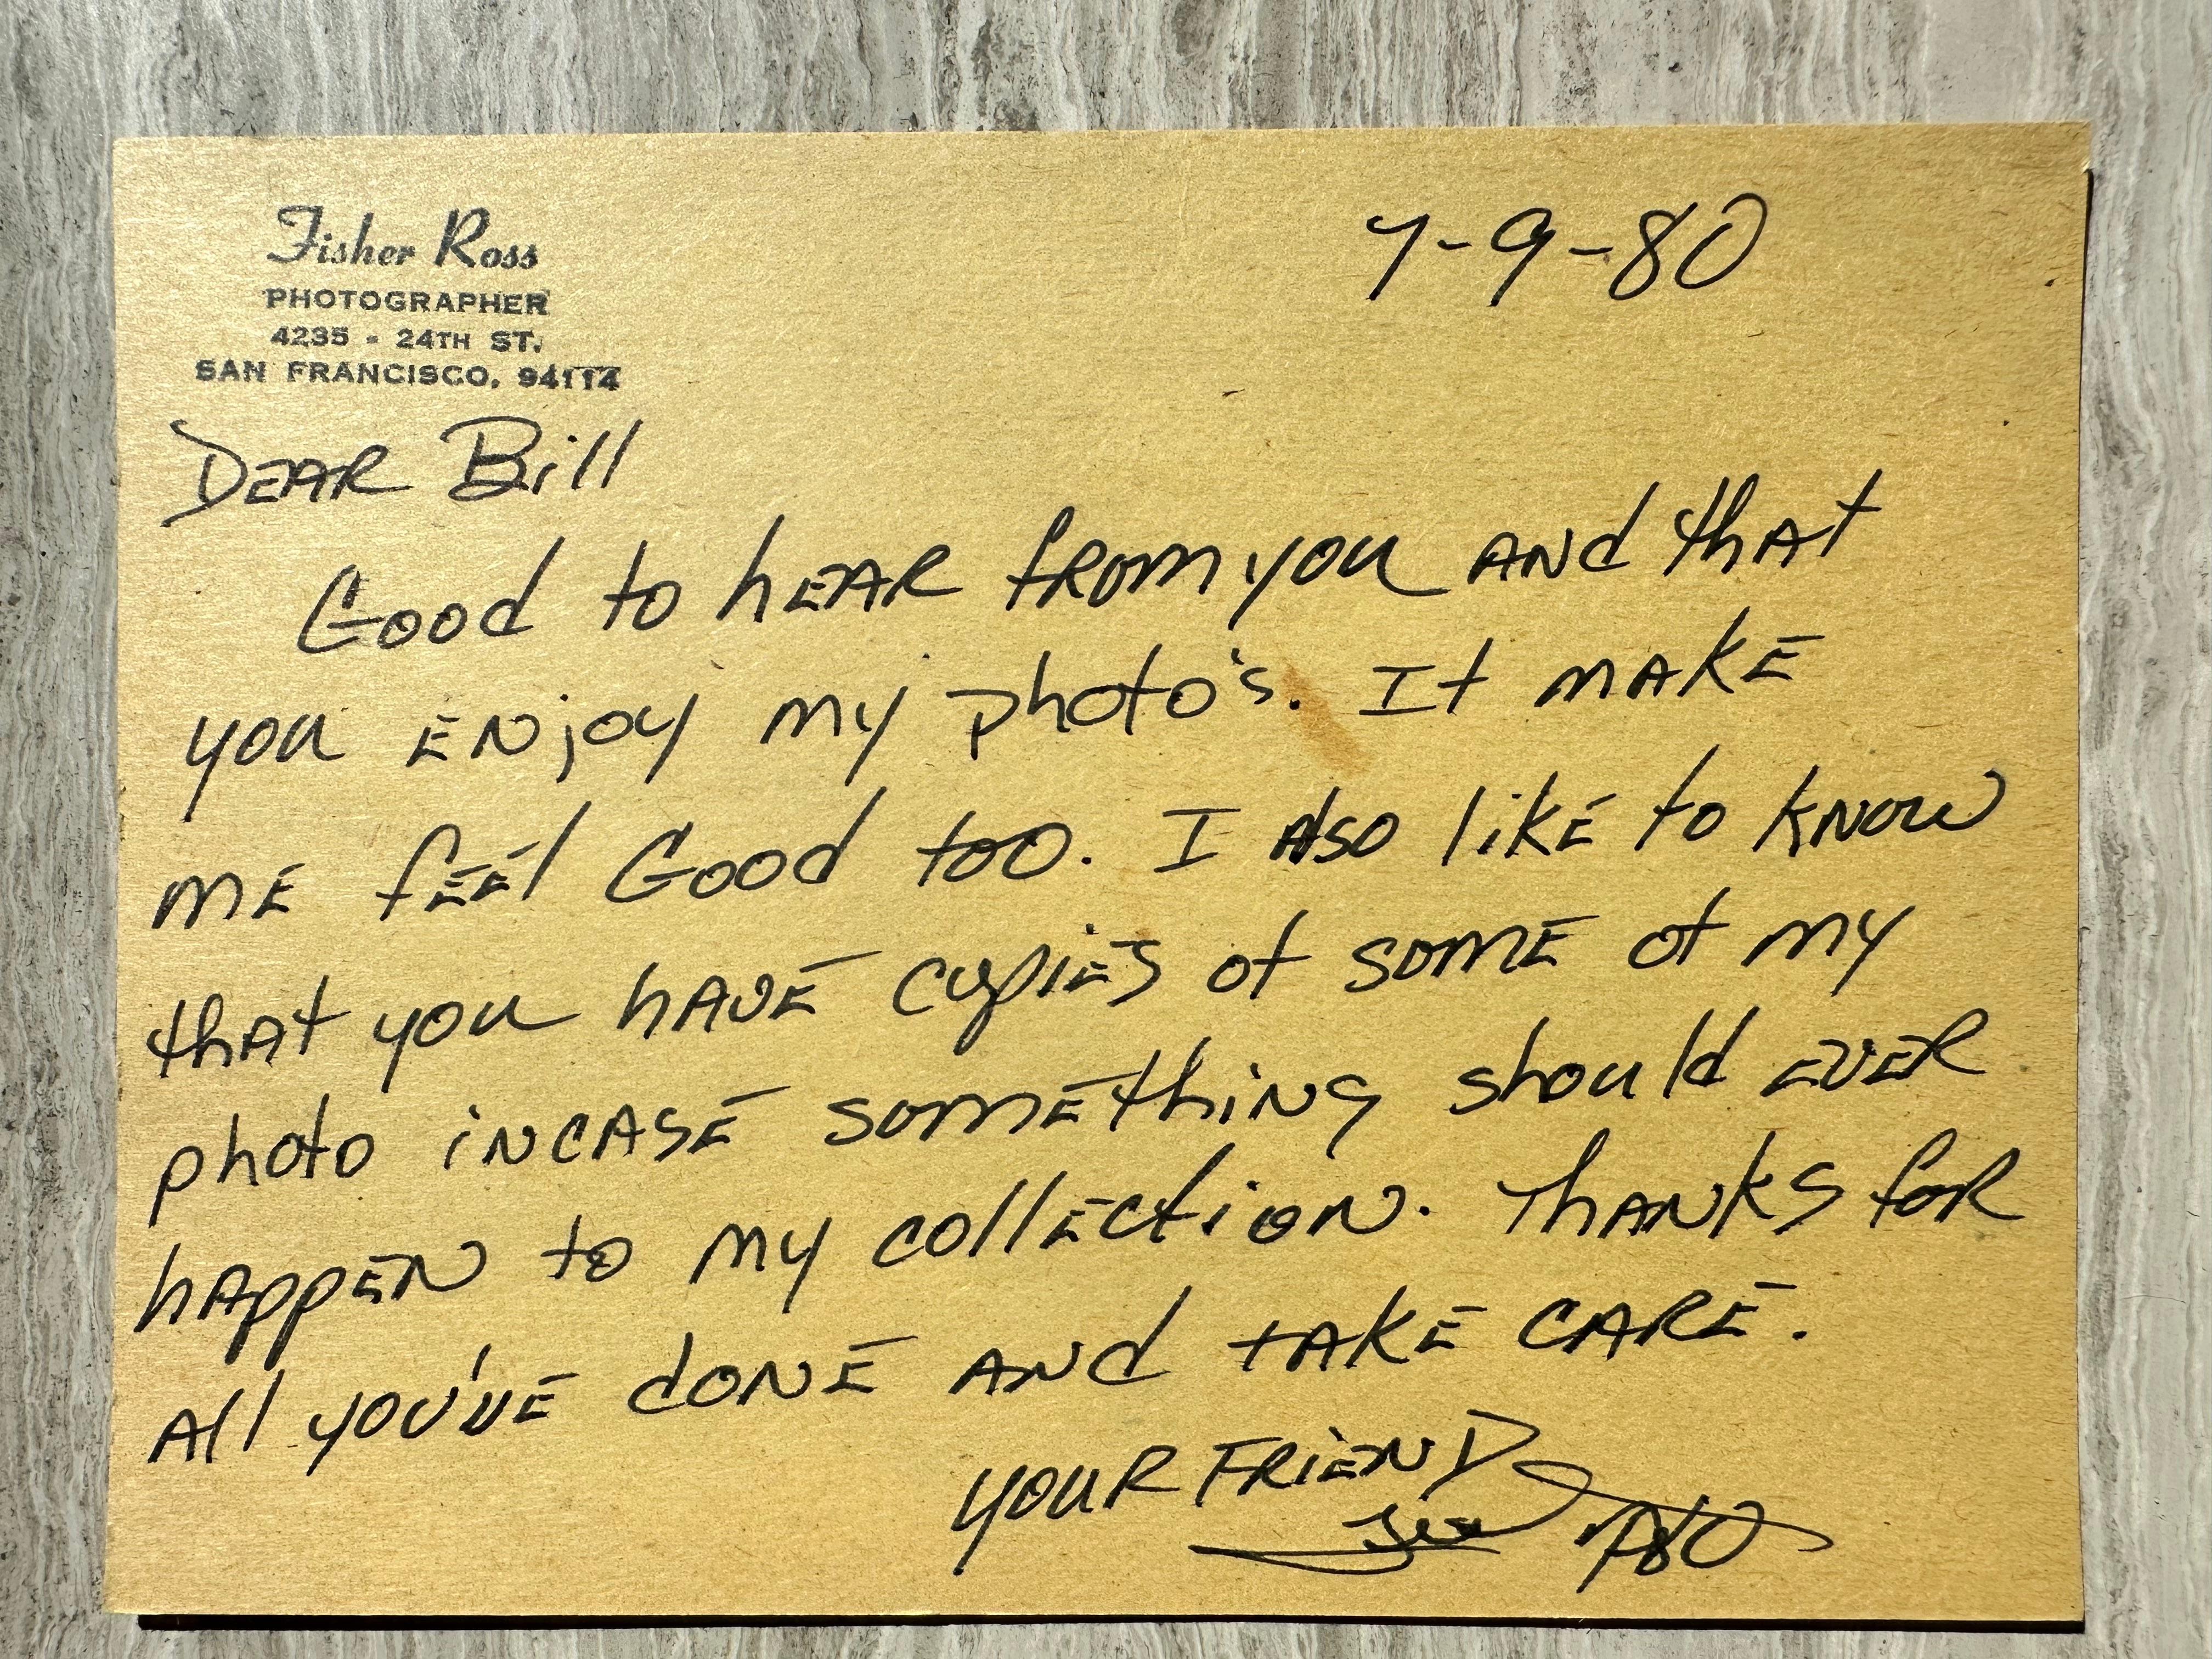 Fisher Ross
PHOTOGRAPHER
4235 - 24TH ST.
SAN FRANCISCO, 94114
7-9-80
DEAR Bill
Good to hEAR fROM you ANd thAt
you ENjoy my photo's. It MAKE
ME fEEl Good too. I Also likE to KNOW
thAt you hAVE copiES of SOME of My
photo iNCASE SOMEthiNg should EVER
hAppEN to My collEctioN. ThANKS foR
All you'VE doNE ANd tAKE CARE.
YOUR FRiEND